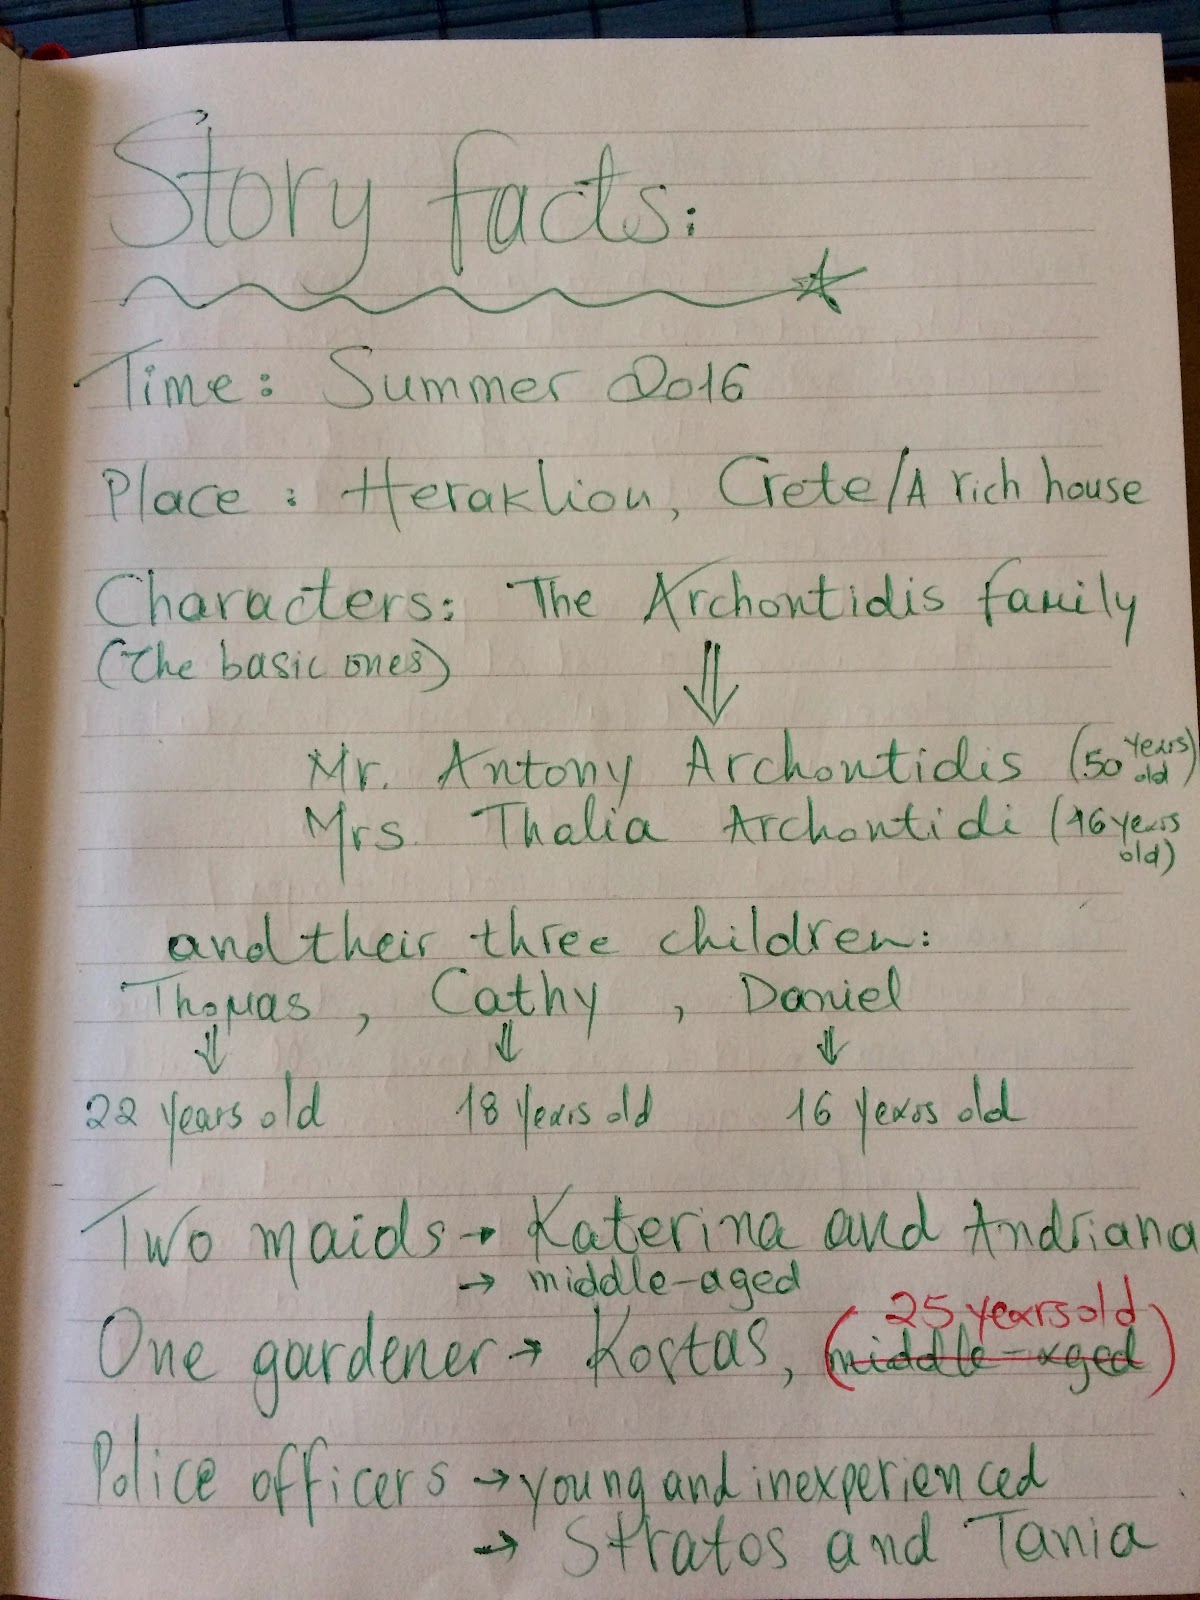 Story facts:
Time: Summer 2016
Place: Heraklion, Crete/A rich house
Characters: The Archontidis family
(the basic ones)
Mr. Antony Archontidis (50 years old)
Mrs. Thalia Archontidi (46 years old)
and their three children:
Thomas, Cathy, Daniel
22 years old 18 years old 16 years old
Two maids → Katerina and Andriana
→ middle-aged
25 years old
One gardener → Kostas, (middle-aged)
Police officers → young and inexperienced
→ Stratos and Tania